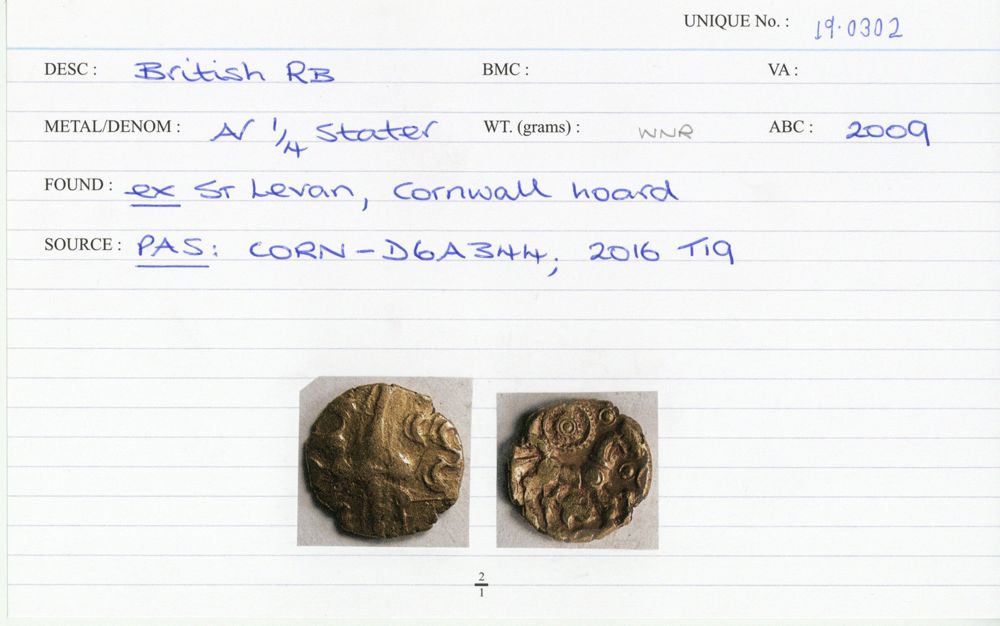 UNIQUE No. : 19.0302
DESC : British RB BMC : VA :
METAL/DENOM : AV 1/4 Stater WT. (grams) : WNR ABC : 2009
FOUND : ex St Levan, Cornwall hoard
SOURCE : PAS: CORN-D6A344; 2016 T19
2
1